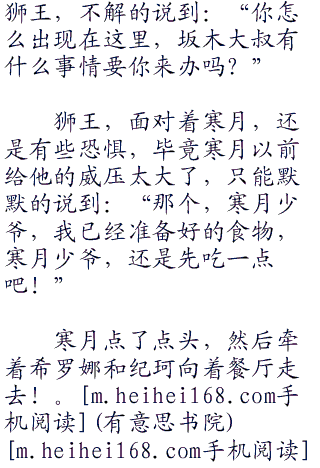 狮王，不解的说到：“你怎
么出现在这里，坂木大叔有
什么事情要你来办吗？”
狮王，面对着寒月，还
是有些恐惧，毕竟寒月以前
给他的威压太大了，只能默
默的说到：“那个，寒月少
爷，我已经准备好的食物，
寒月少爷，还是先吃一点
吧！”
寒月点了点头，然后牵
着希罗娜和纪珂向着餐厅走
去！。[m.heihei168.com手
机阅读](有意思书院)
[m.heihei168.com手机阅读]